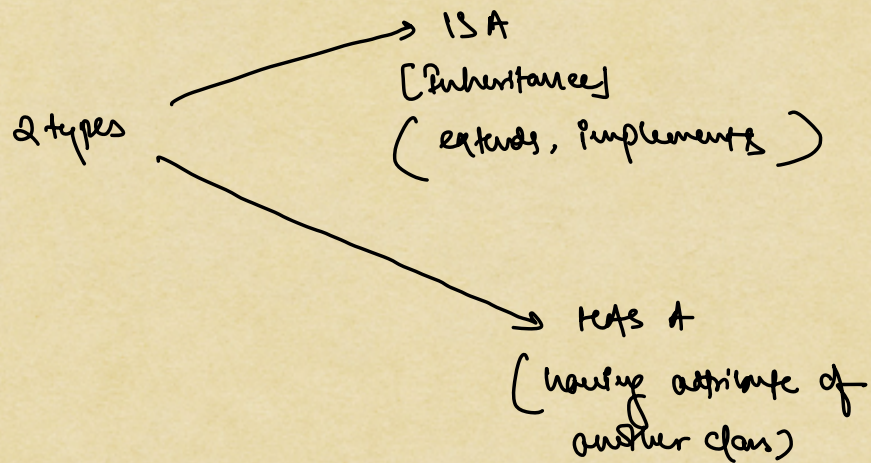 IS A
[Inheritance]
2 types
(extends, implements)
HAS A
(having attribute of
another class)